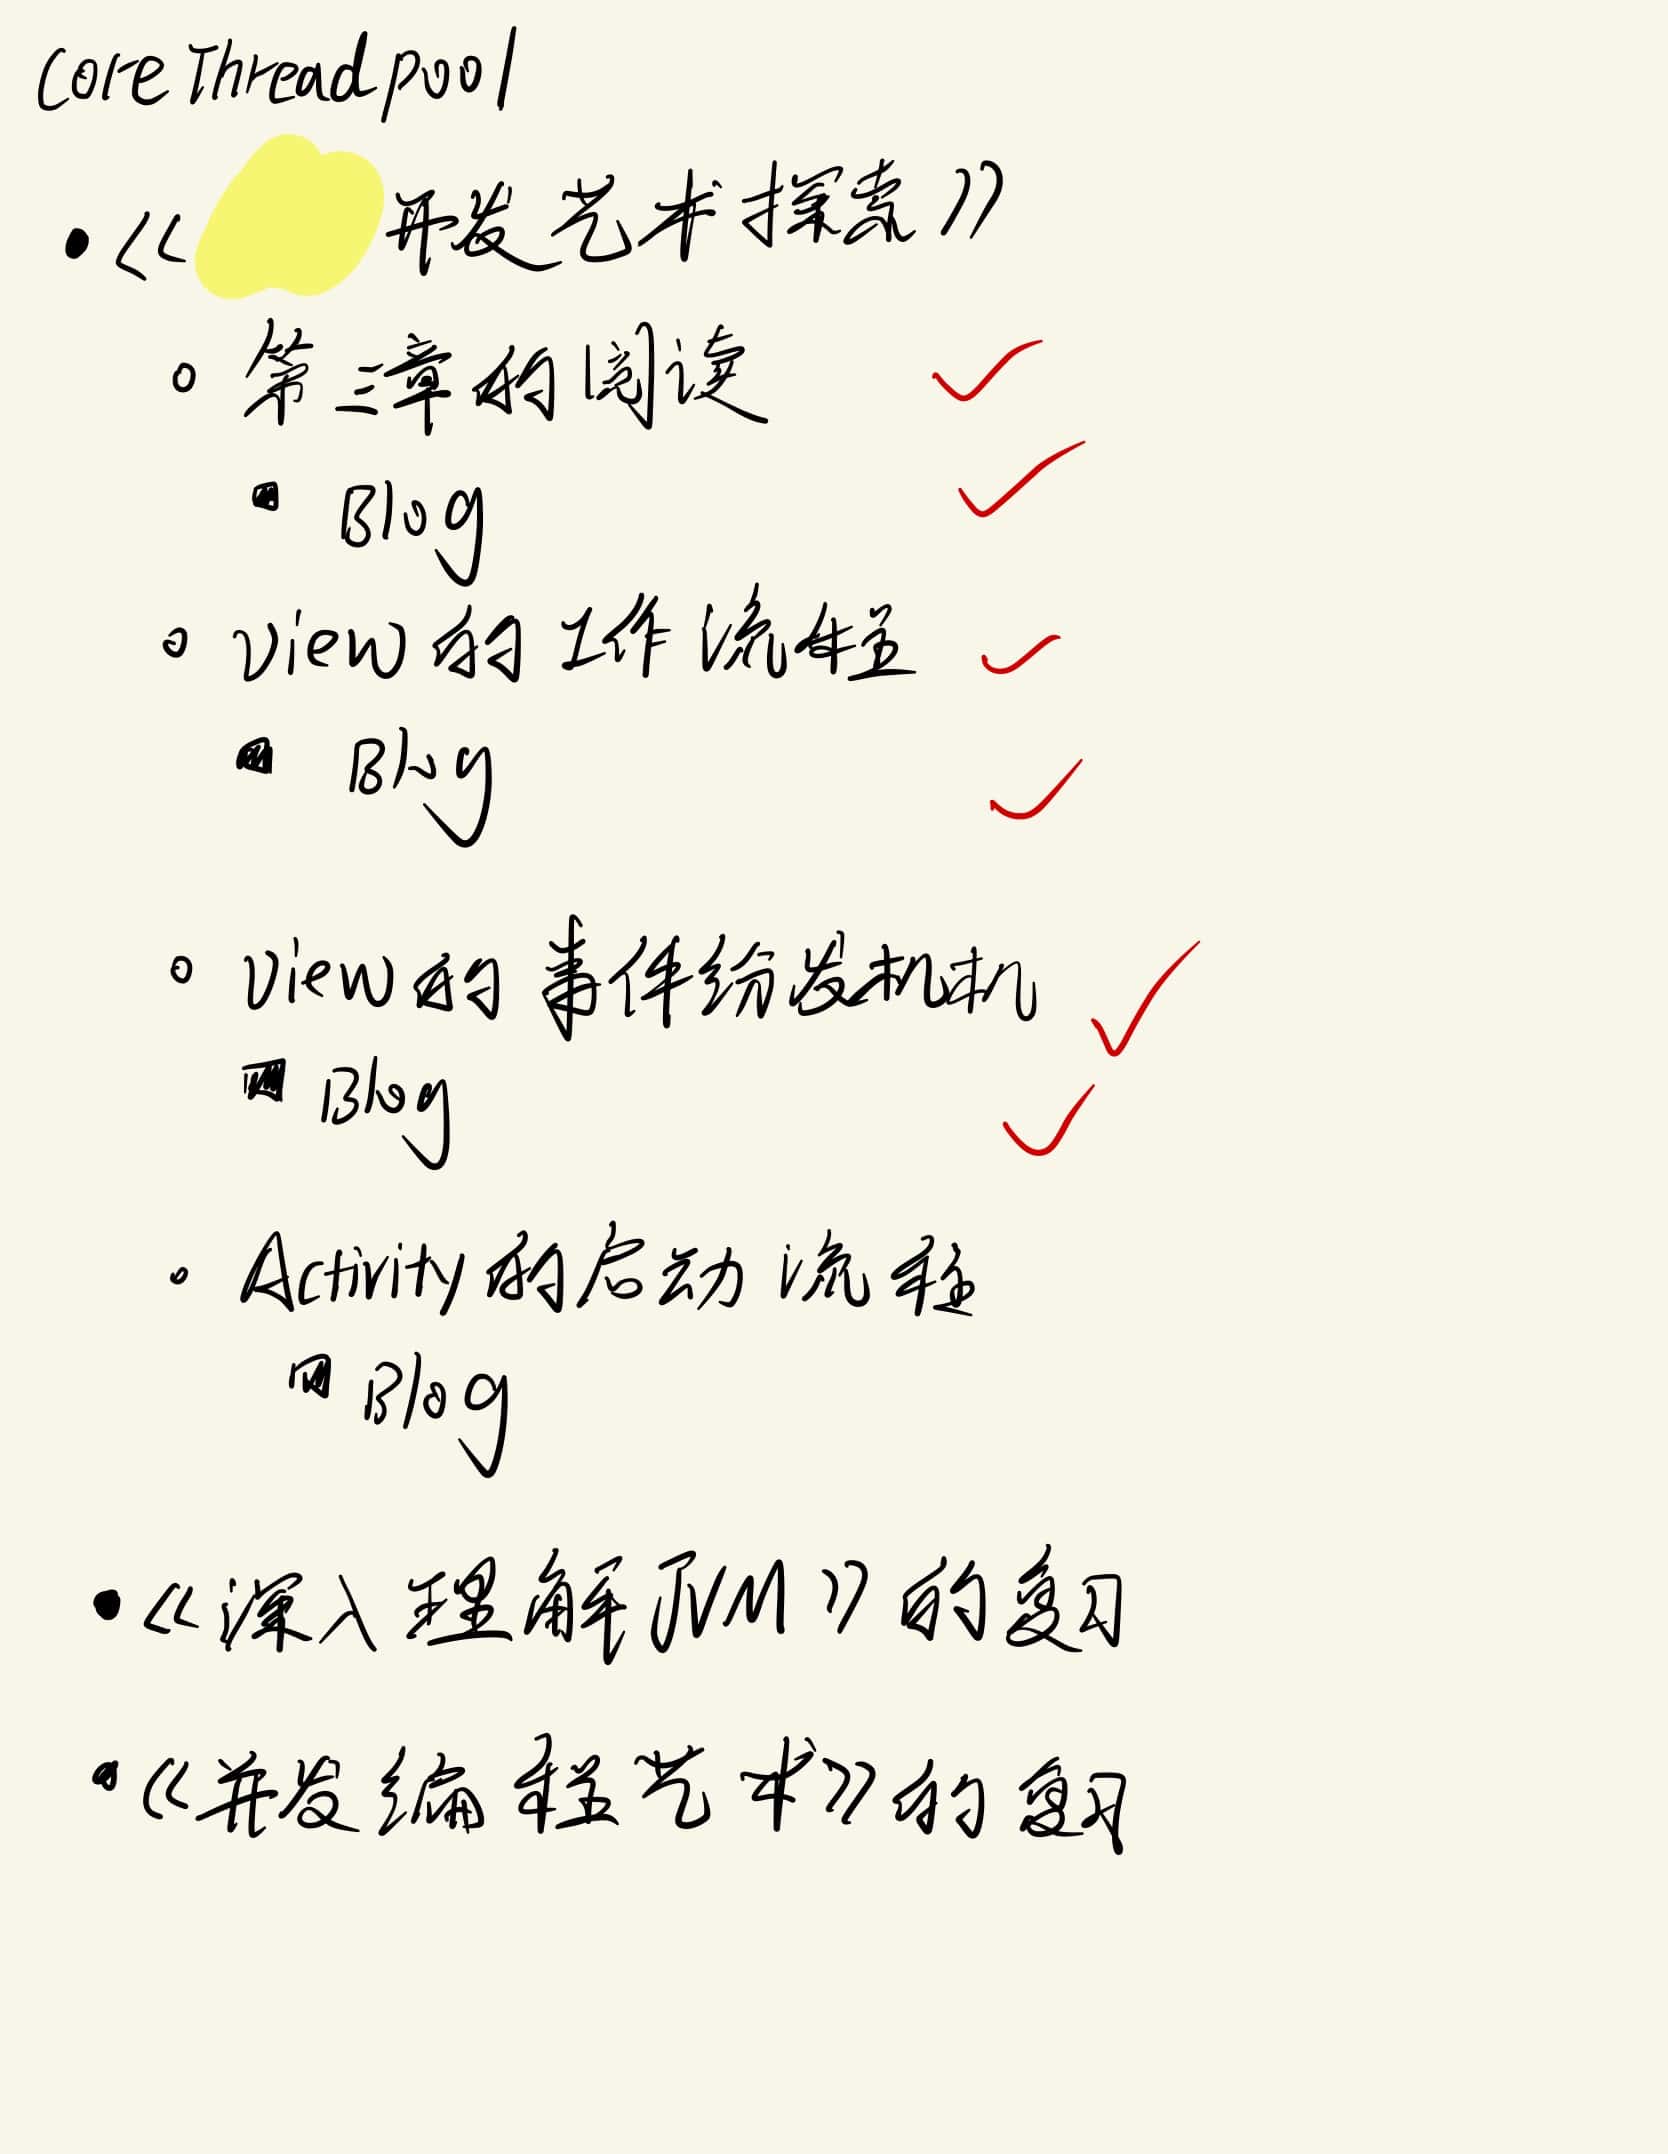 CoreThreadpool
《 开发艺术探索》
第三章的阅读
Blog
View的工作流程
Blog
View的事件分发机机
Blog
Activity的启动流程
Blog
《深入理解JVM》的复习
《并发编程艺术》的复习